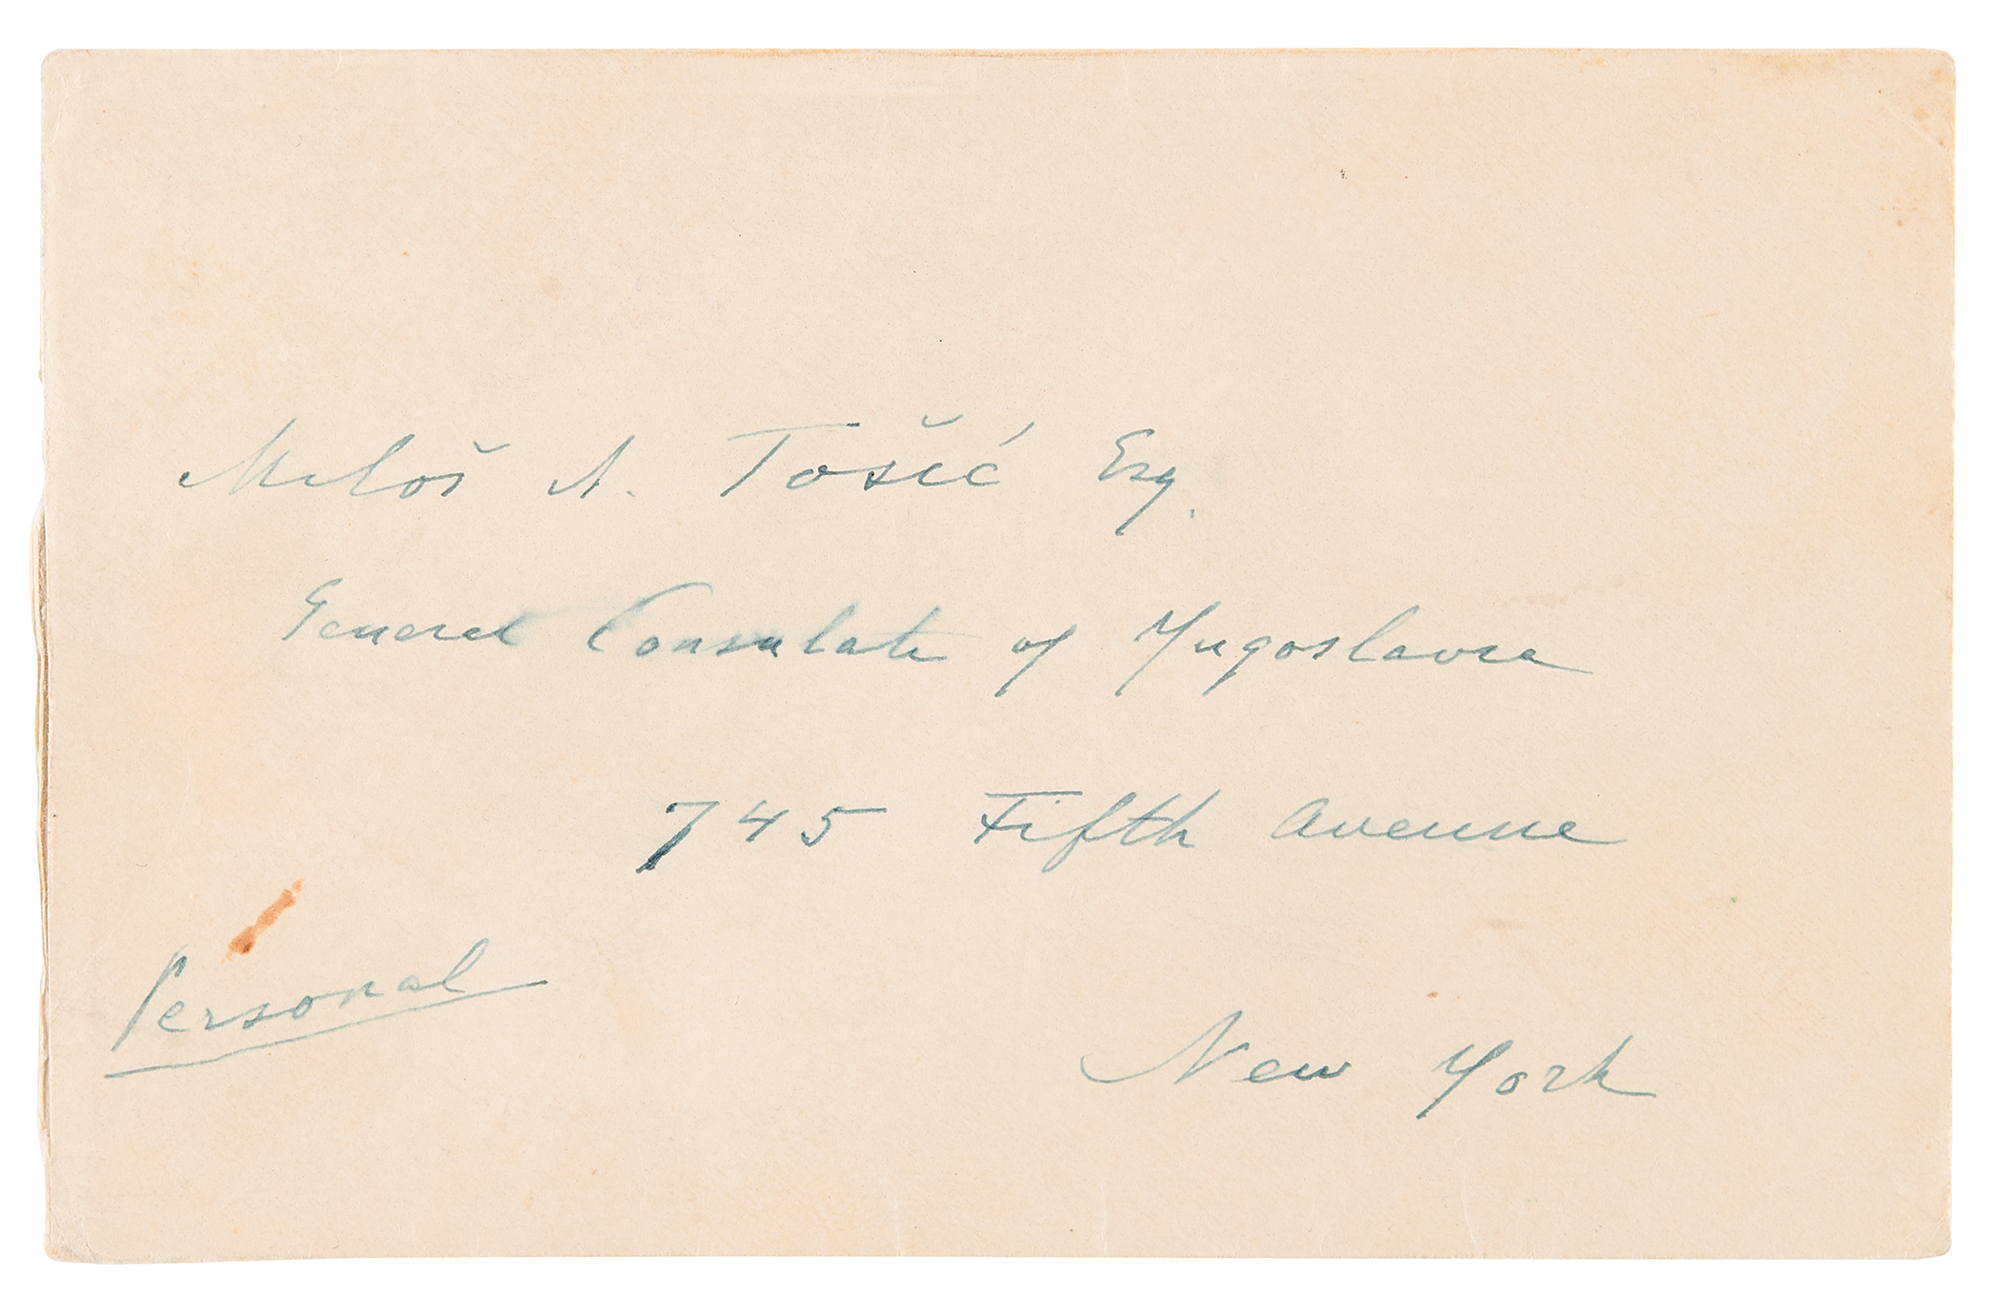 Miloš A. Tošić Esq.
General Consulate of Yugoslavia
745 Fifth Avenue
Personal
New York